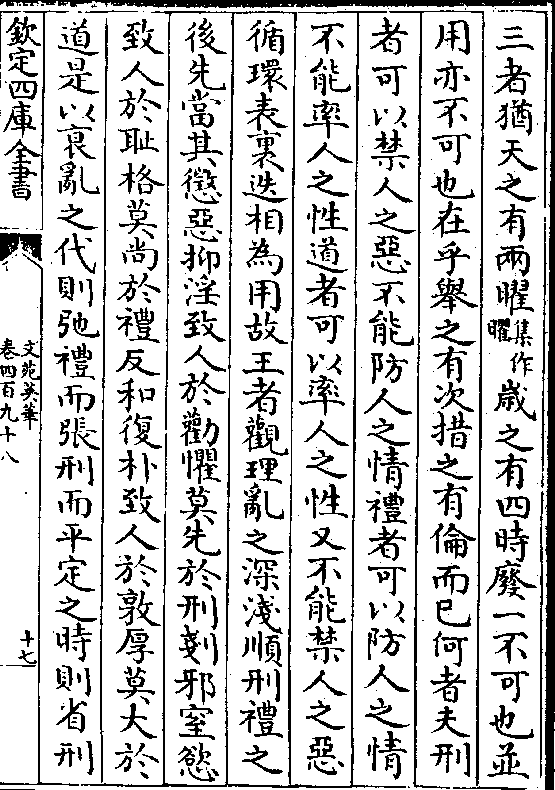 三者猶天之有兩曜集作曜歲之有四時廢一不可也並
用亦不可也在乎舉之有次措之有倫而已何者夫刑
者可以禁人之惡不能防人之情禮者可以防人之情
不能率人之性道者可以率人之性又不能禁人之惡
循環表裏迭相為用故王者觀理亂之深淺順刑禮之
後先當其懲惡抑淫致人於勸懼莫先於刑剗邪窒慾
致人於耻格莫尚於禮反和復朴致人於敦厚莫大於
道是以衰亂之代則弛禮而張刑而平定之時則省刑
欽定四庫全書
文苑英華
卷四百九十八
十七